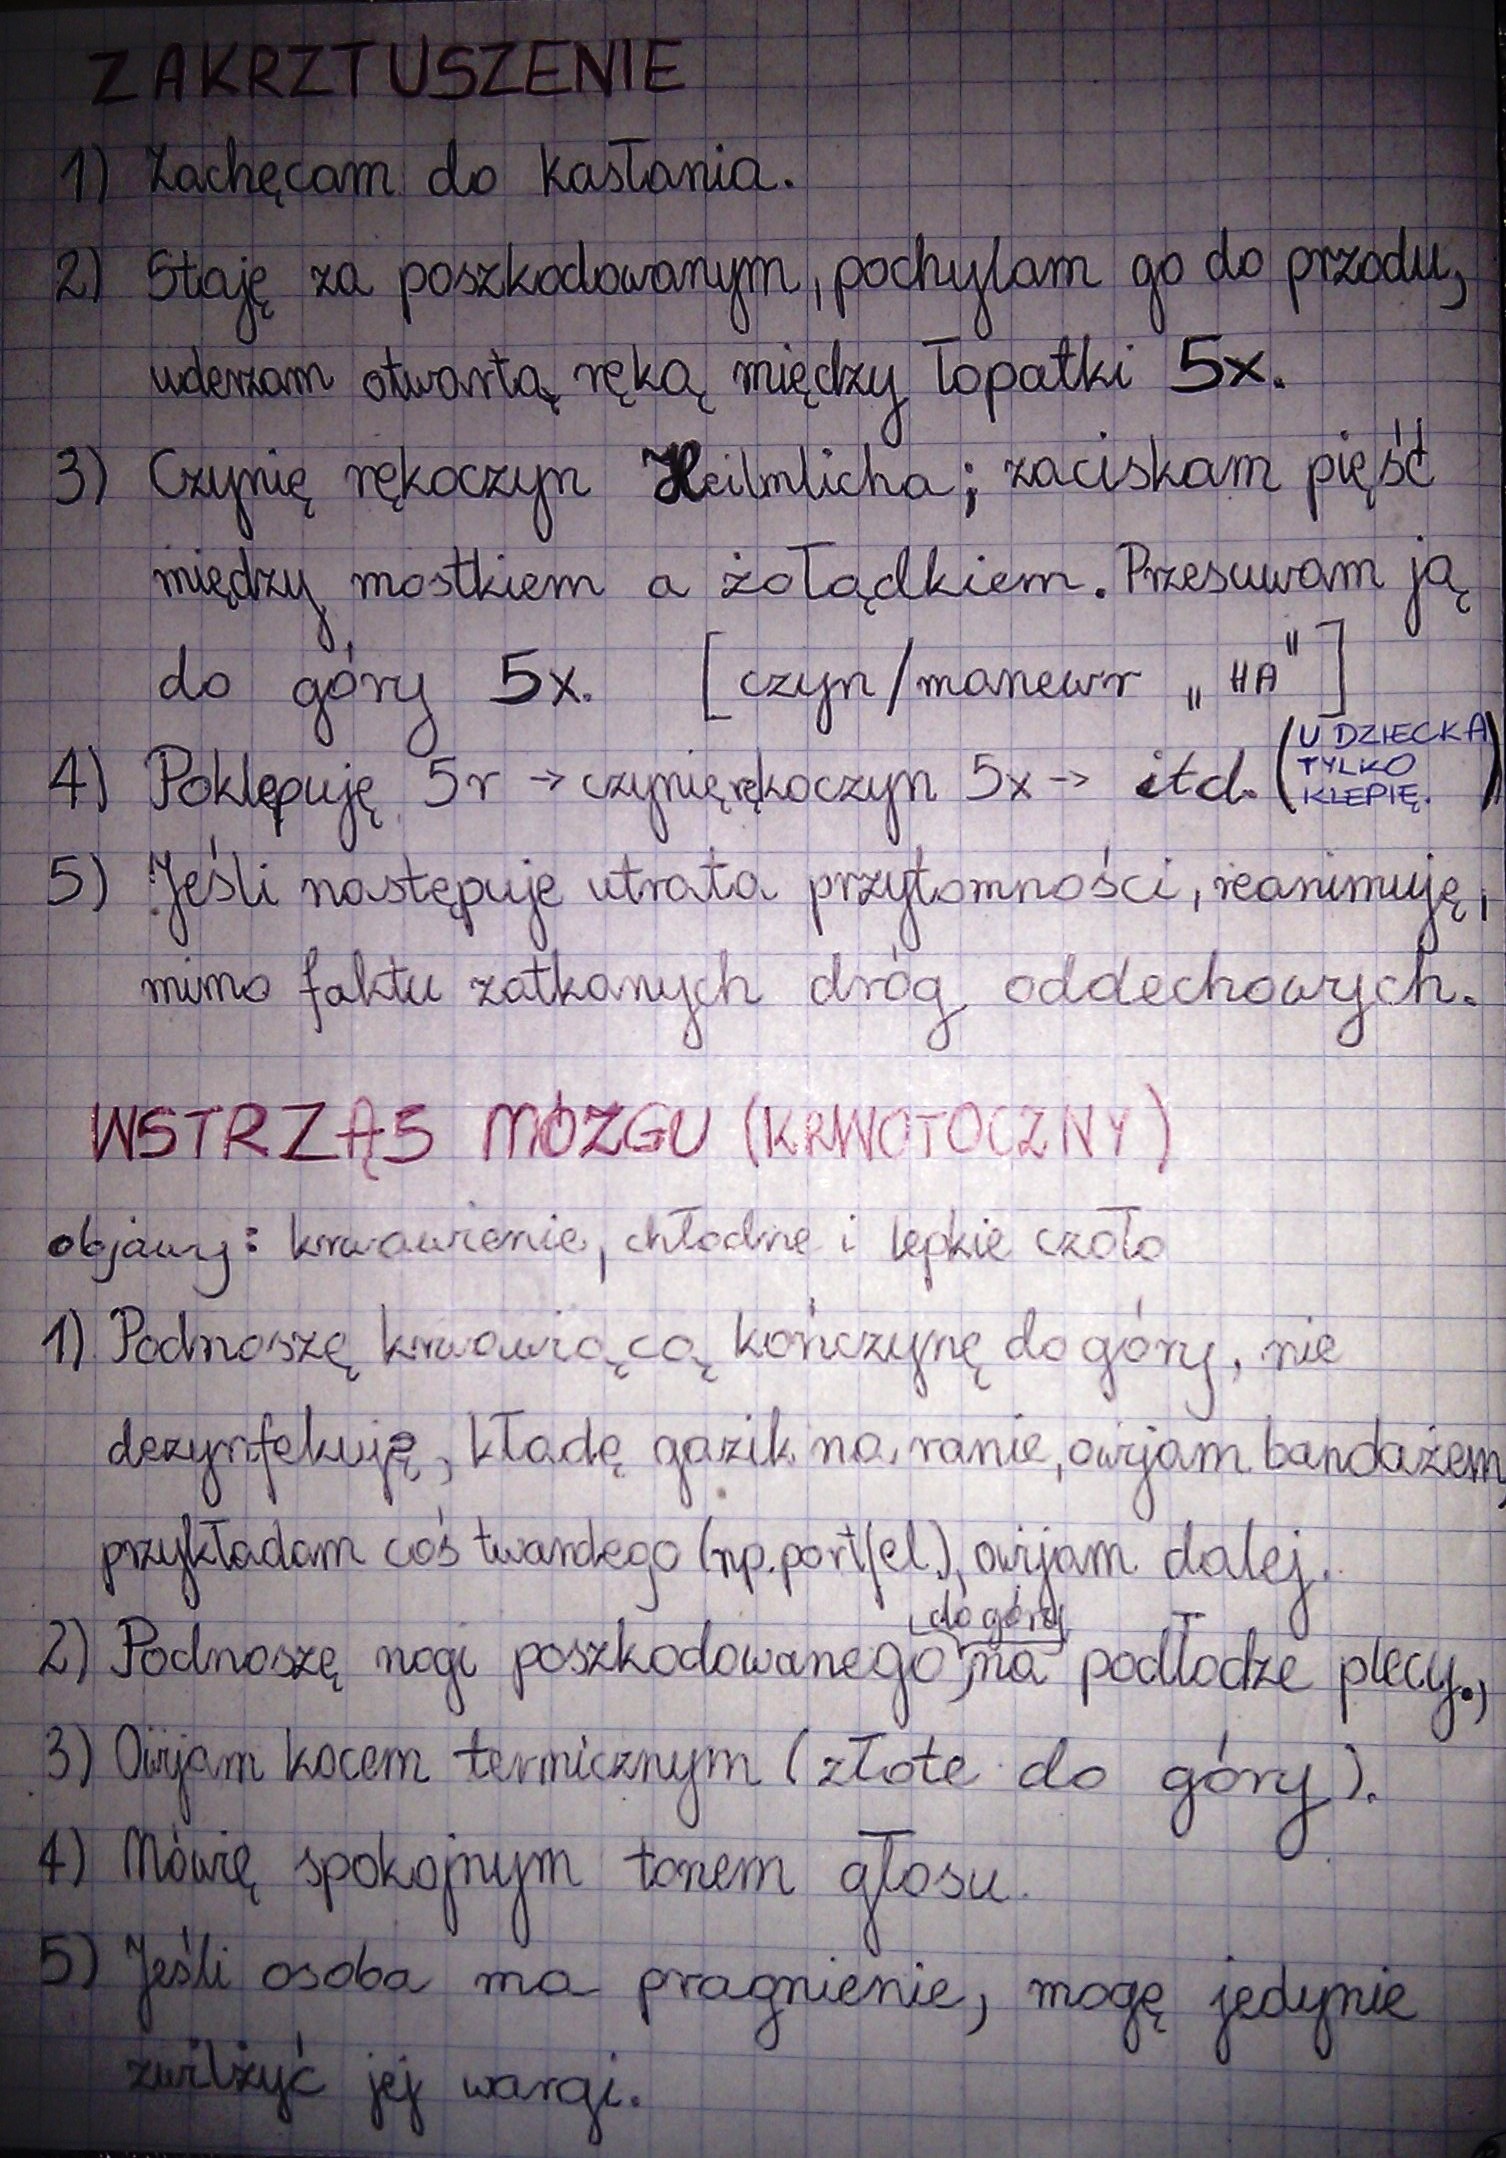 ZAKRZTUSZENIE
1) Zachęcam do kasłania.
2) Staję za poszkodowanym, pochylam go do przodu,
uderzam otwartą ręką między łopatki 5x.
3) Czynię rękoczyn Heilmlicha; zaciskam pięść
między mostkiem a żołądkiem. Przesuwam ją
do góry 5x. [czyn/manewr „HA"]
4) Poklepuję 5r → czynię rękoczyn 5x → itd. (U DZIECKA
TYLKO
KLEPIĘ.)
5) Jeśli następuje utrata przytomności, reanimuję,
mimo faktu zatkanych dróg oddechowych.
WSTRZĄS MÓZGU (KRWOTOCZNY)
objawy: krwawienie, chłodne i lepkie czoło
1) Podnoszę krwawiącą kończynę do góry, nie
dezynfekuję, kładę gazik na ranie, owijam bandażem,
przykładam coś twardego (np. portfel), owijam dalej.
do góry
2) Podnoszę nogi poszkodowanego, na podłodze plecy.,
3) Owijam kocem termicznym (złote do góry).
4) Mówię spokojnym tonem głosu.
5) Jeśli osoba ma pragnienie, mogę jedynie
zwilżyć jej wargi.